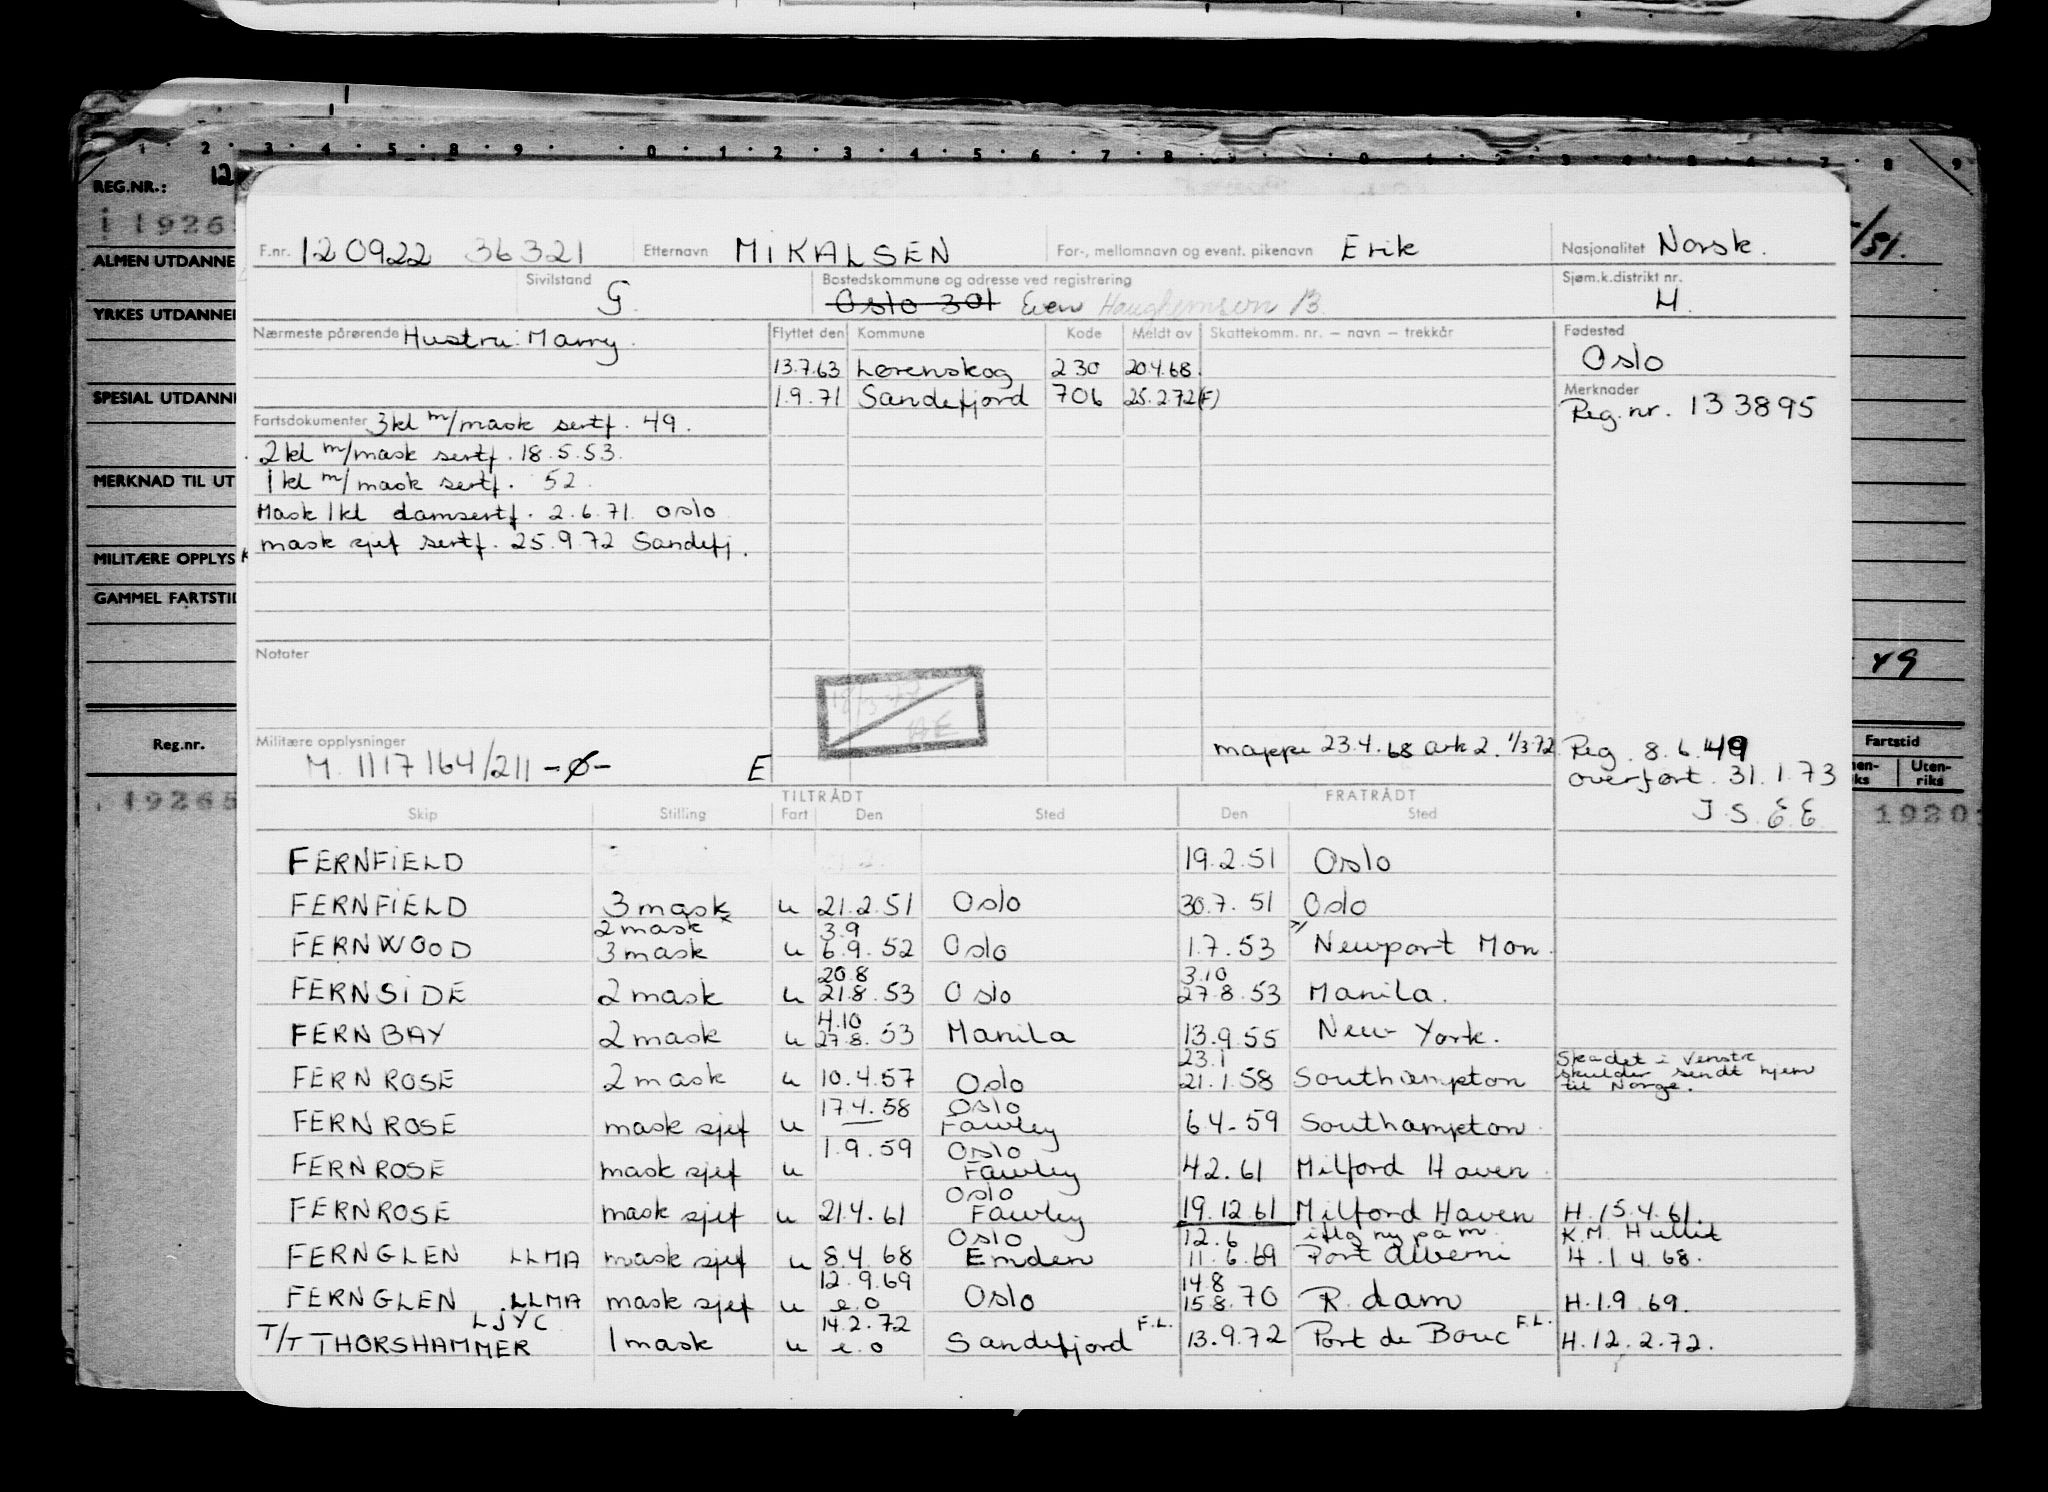 1 · 2 · 3 · 4 · 5 · 8 · 9 · · 0 · 1 · 2 · 3 · 4 · 5 · 6 · 7 · 8
REG.NR.: 12
i 1926
ALMEN UTDANNE
YRKES UTDANNE
SPESIAL UTDANN
MERKNAD TIL UT
MILITÆRE OPPLYS
GAMMEL FARTSTI
Reg.nr.
19265
/51.
49
Fartstid
Uten-
riks
1920
F.nr. 120922 36321 Etternavn MIKALSEN For-, mellomnavn og event. pikenavn Erik Nasjonalitet Norsk.
Sivilstand G. Bostedskommune og adresse ved registrering Oslo 301 Even B Sjøm.k.distrikt nr. H.
Nærmeste pårørende Hustru: Marry. Flyttet den Kommune Kode Meldt av Skattekomm. nr. – navn – trekkår Fødested
Oslo
13.7.63 Lørenskog 230 20.4.68.
1.9.71 Sandefjord 706 25.2.72(F)
Merknader
Reg.nr. 133895
Fartsdokumenter 3kl m/mask sertf. 49.
2kl m/mask sertf. 18.5.53.
1kl m/mask sertf. 52.
Mask 1kl damsertf. 2.6.71. Oslo
mask sjef sertf. 25.9.72 Sandefj.
Notater
Militære opplysninger
M. 1117164/211 -ø- E
mappe 23.4.68 ark 2. 1/3.72.
Reg. 8.6.49
overført. 31.1.73
J.S.E.E.
TILTRÅDT FRATRÅDT
Skip Stilling Fart Den Sted Den Sted
FERNFIELD 19.2.51 Oslo
FERNFIELD 3 mask u 21.2.51 Oslo 30.7.51 Oslo
2 mask x 3.9 x/
FERNWOOD 3 mask u 6.9.52 Oslo 1.7.53 Newport Mon.
20.8 3.10
FERNSIDE 2 mask u 21.8.53 Oslo 27.8.53 Manila.
4.10
FERNBAY 2 mask u 27.8.53 Manila 13.9.55 New York.
23.1 Skadet i venstre
FERNROSE 2 mask u 10.4.57 Oslo 21.1.58 Southampton skulder sendt hjem
til Norge.
17.4.58 Oslo
FERNROSE mask sjef u Fawley 6.4.59 Southampton.
1.9.59 Oslo
FERNROSE mask sjef u Fawley 4.2.61 Milford Haven.
Oslo
FERNROSE mask sjef u 21.4.61 Fawley 19.12.61 Milford Haven H.15.4.61.
Oslo 12.6 iflg ny påm K.M. Hullit
FERNGLEN LLMA mask sjef u 8.4.68 Emden 11.6.69 Port Alberni H.1.4.68.
12.9.69 14.8
FERNGLEN LLMA mask sjef u e.o Oslo 15.8.70 R.dam H.1.9.69.
LJYC 14.2.72 F.L. F.L.
T/T THORSHAMMER 1 mask u e.o Sandefjord 13.9.72 Port de Bouc H.12.2.72.